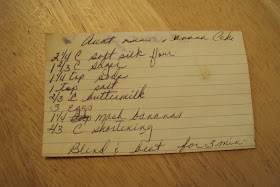 Aunt nunu's Banana Cake
2 1/4 C soft silk flour
1 2/3 C sugar
1 1/4 tsp soda
1 tsp salt
2/3 C buttermilk
3 eggs
1 1/4 mash bananas
2/3 C shortening
Blend & beat for 3 min